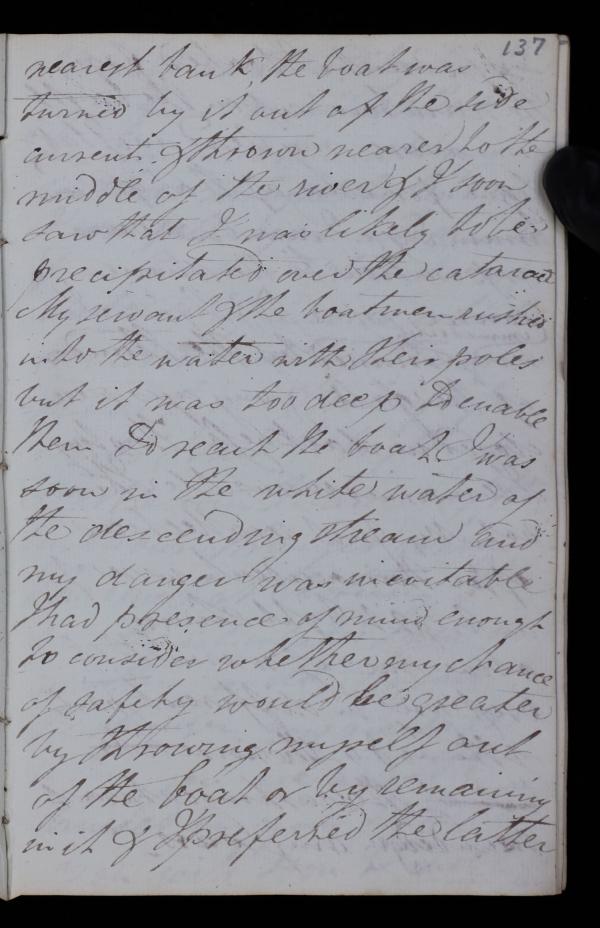 137
nearest bank, the boat was
turned by it out of the side
current & thrown nearer to the
middle of the river & I soon
saw that I was likely to be
precipitated over the cataract
My servant & the boatmen rushed
into the water with their poles
but it was too deep to enable
them to reach the boat, I was
soon in the white water of
the descending stream and
my danger was inevitable
I had presence of mind enough
to consider whether my chance
of safety would be greater
by throwing myself out
of the boat or by remaining
in it & I preferred the latter